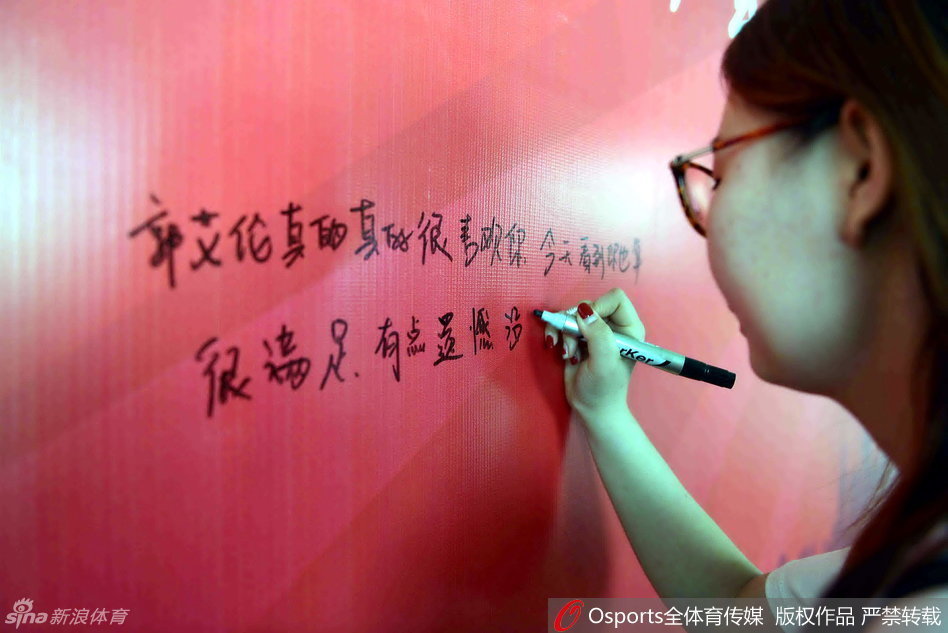 郭艾伦真的真的很喜欢你 今天看到
很满足.有点遗憾没
rKer
sina新浪体育
Osports全体育传媒 版权作品 严禁转载